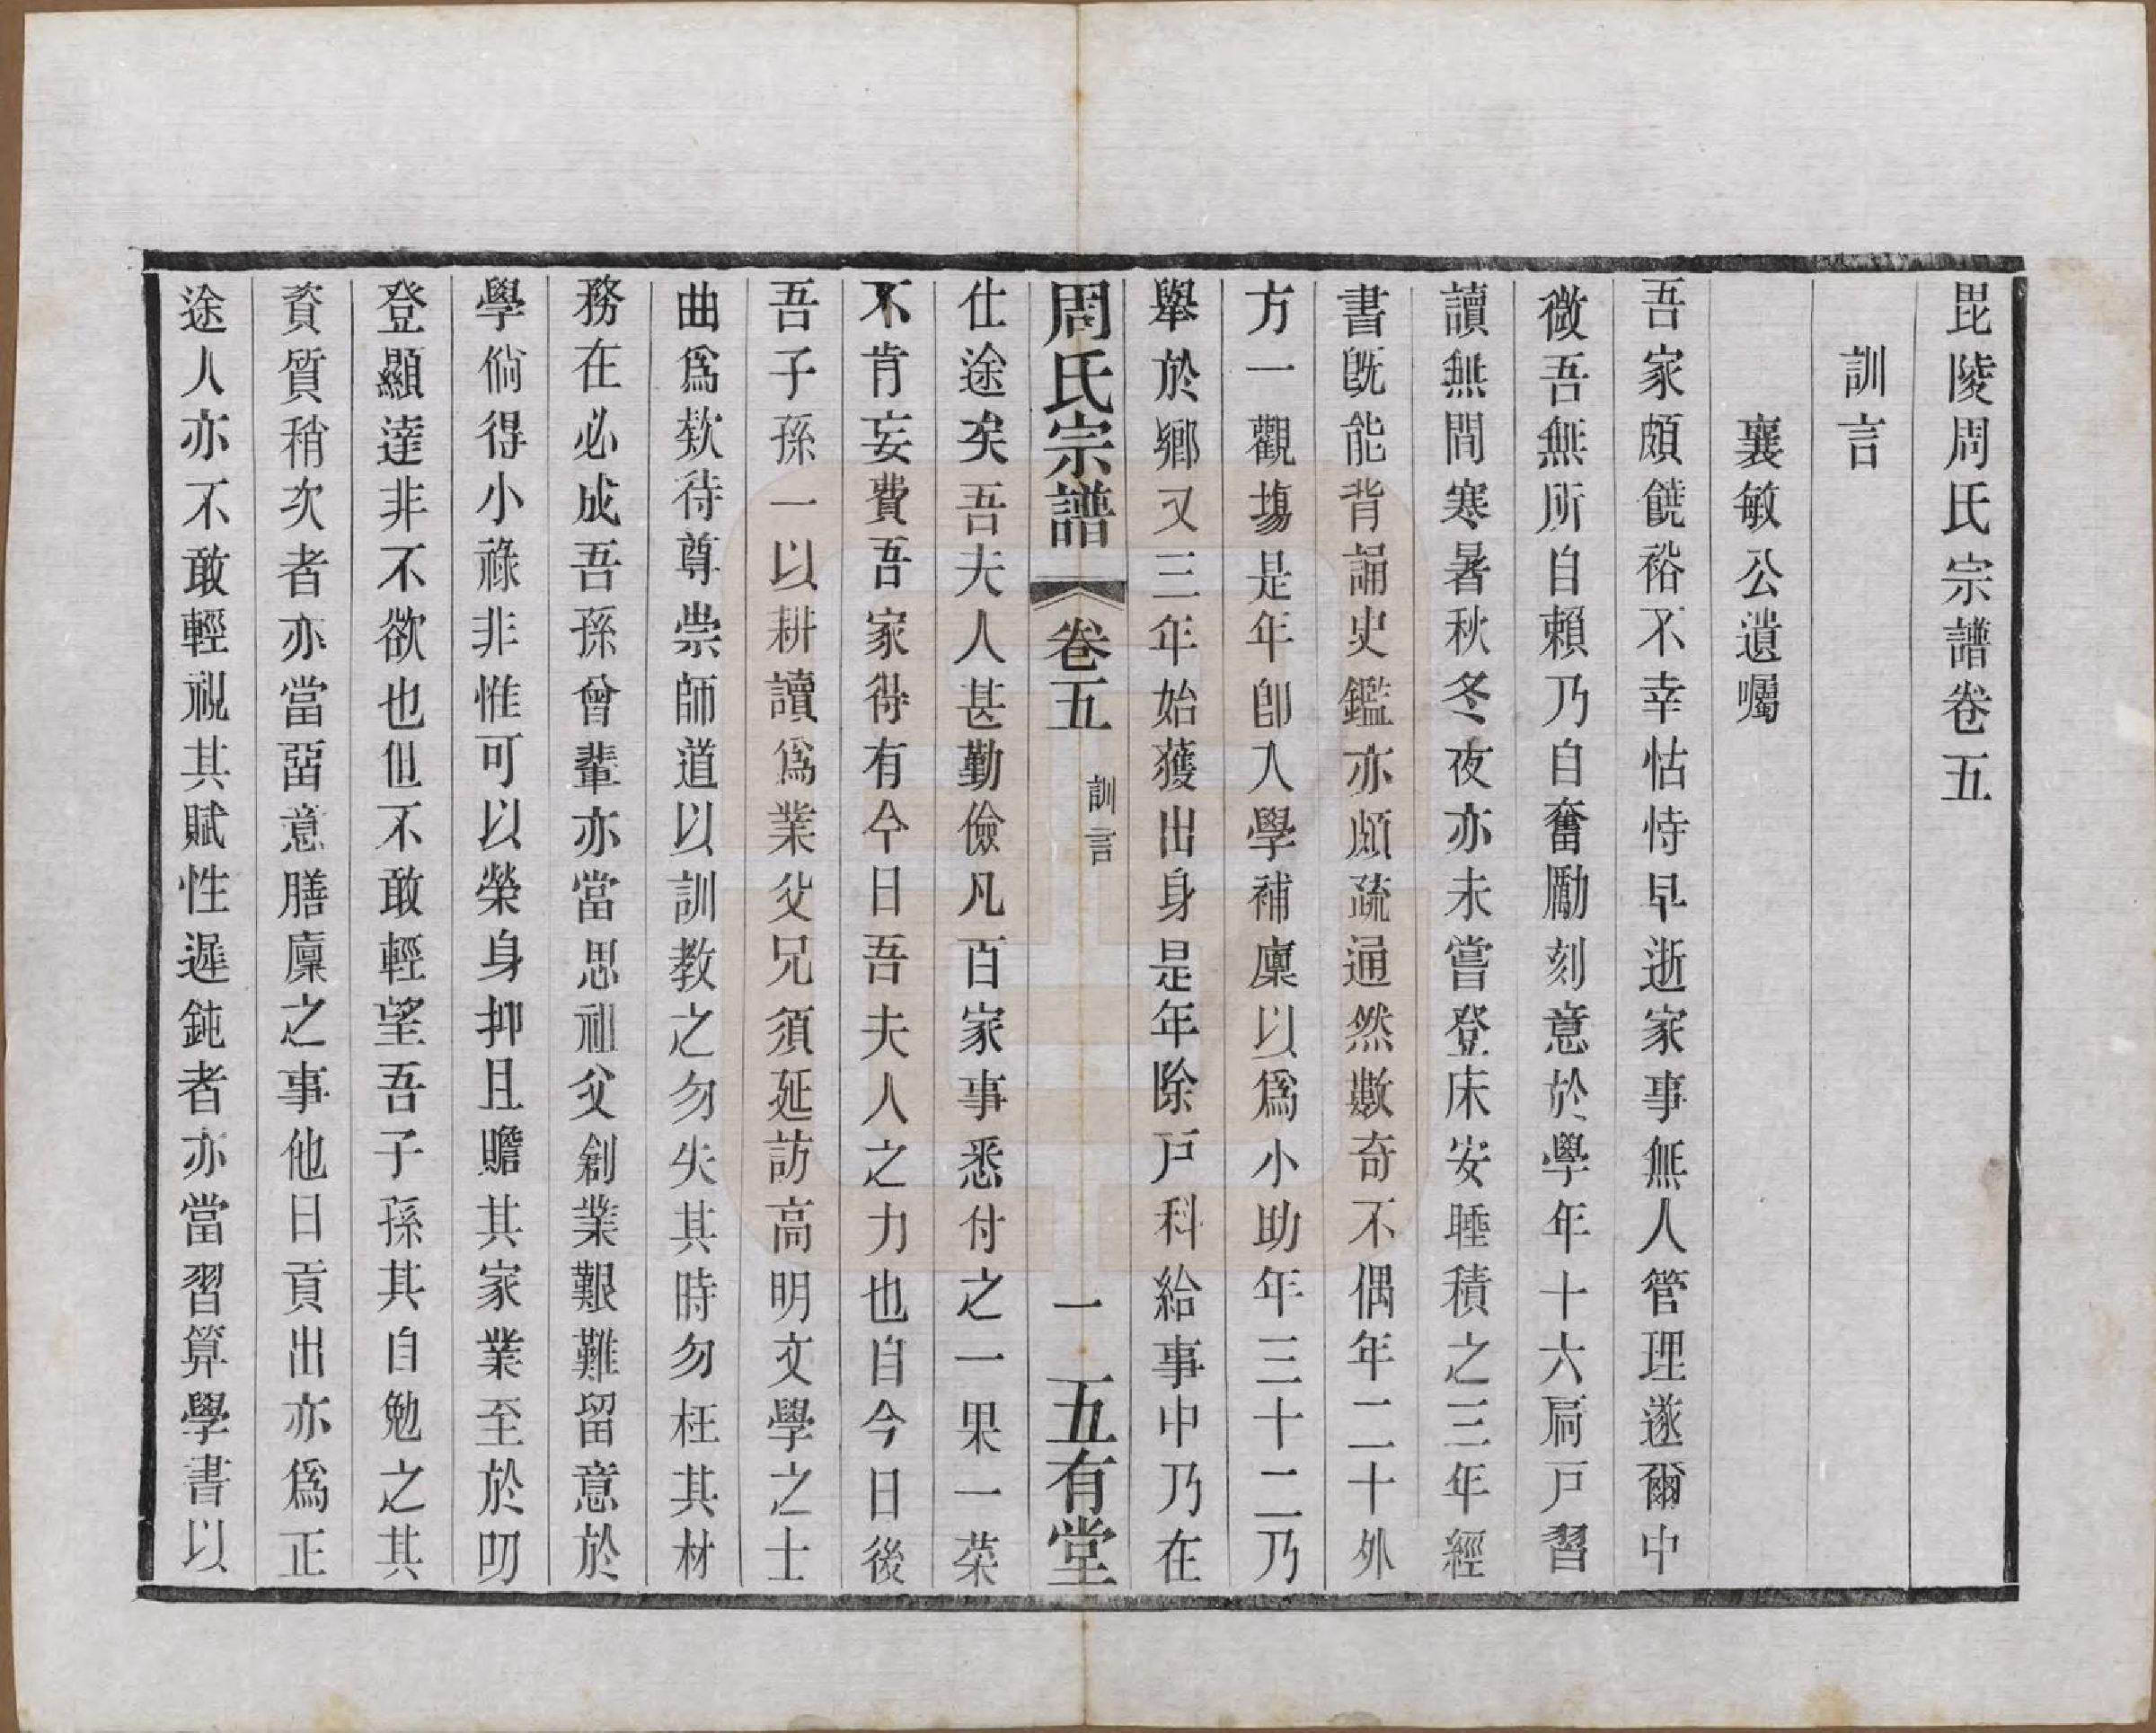 毘陵周氏宗譜卷五
訓言
襄敏公遺囑
吾家頗饒裕不幸怙恃早逝家事無人管理遂爾中
微吾無所自賴乃自奮勵刻意於學年十六扃戸習
讀無間寒暑秋冬夜亦未嘗登床安睡積之三年經
書既能背誦史鑑亦頗疏通然數奇不偶年二十外
方一觀塲是年卽入學補廩以爲小助年三十二乃
舉於鄉又三年始獲出身是年除戸科給事中乃在
周氏宗譜 卷五 訓言 一 五有堂
仕途矣吾夫人甚勤儉凡百家事悉付之一果一菜
不肯妄費吾家得有今日吾夫人之力也自今日後
吾子孫一以耕讀爲業父兄須延訪高明文學之士
曲爲欵待尊崇師道以訓教之勿失其時勿枉其材
務在必成吾孫曾輩亦當思祖父創業艱難留意於
學倘得小祿非惟可以榮身抑且贍其家業至於叨
登顯達非不欲也但不敢輕望吾子孫其自勉之其
資質稍次者亦當畱意膳廩之事他日貢出亦爲正
途人亦不敢輕視其賦性遲鈍者亦當習算學書以